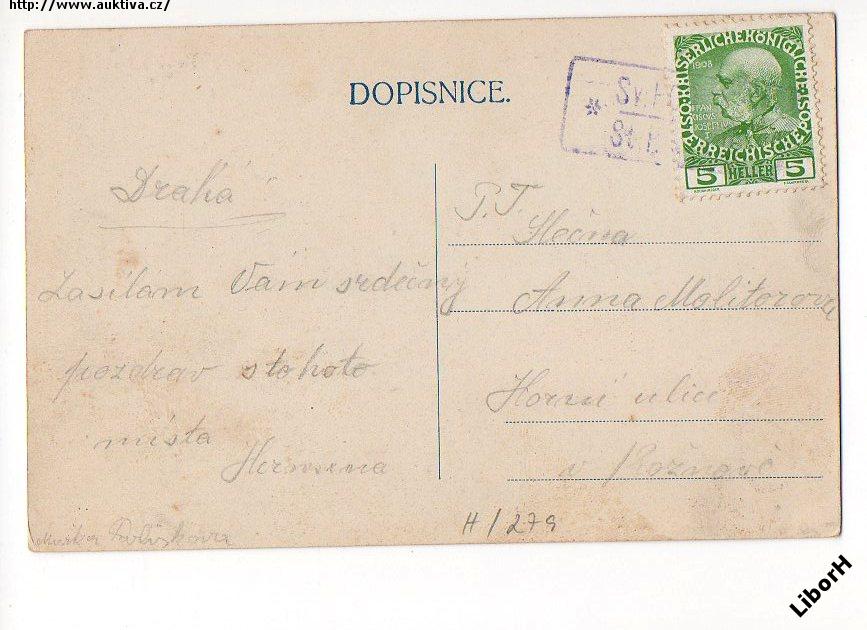 http://www.auktiva.cz/
DOPISNICE.
* Sv. H
St. H
KAISERLICHEKÖNIGLICHE
ÖSTERREICHISCHEPOST
1908
5 HELLER 5
Drahá
Zasílám Vám srdečný
pozdrav stohoto
místa
Hermina
P. T.
Slečna
Anna Malitorova
Horní ulice
v
H/279
LiborH